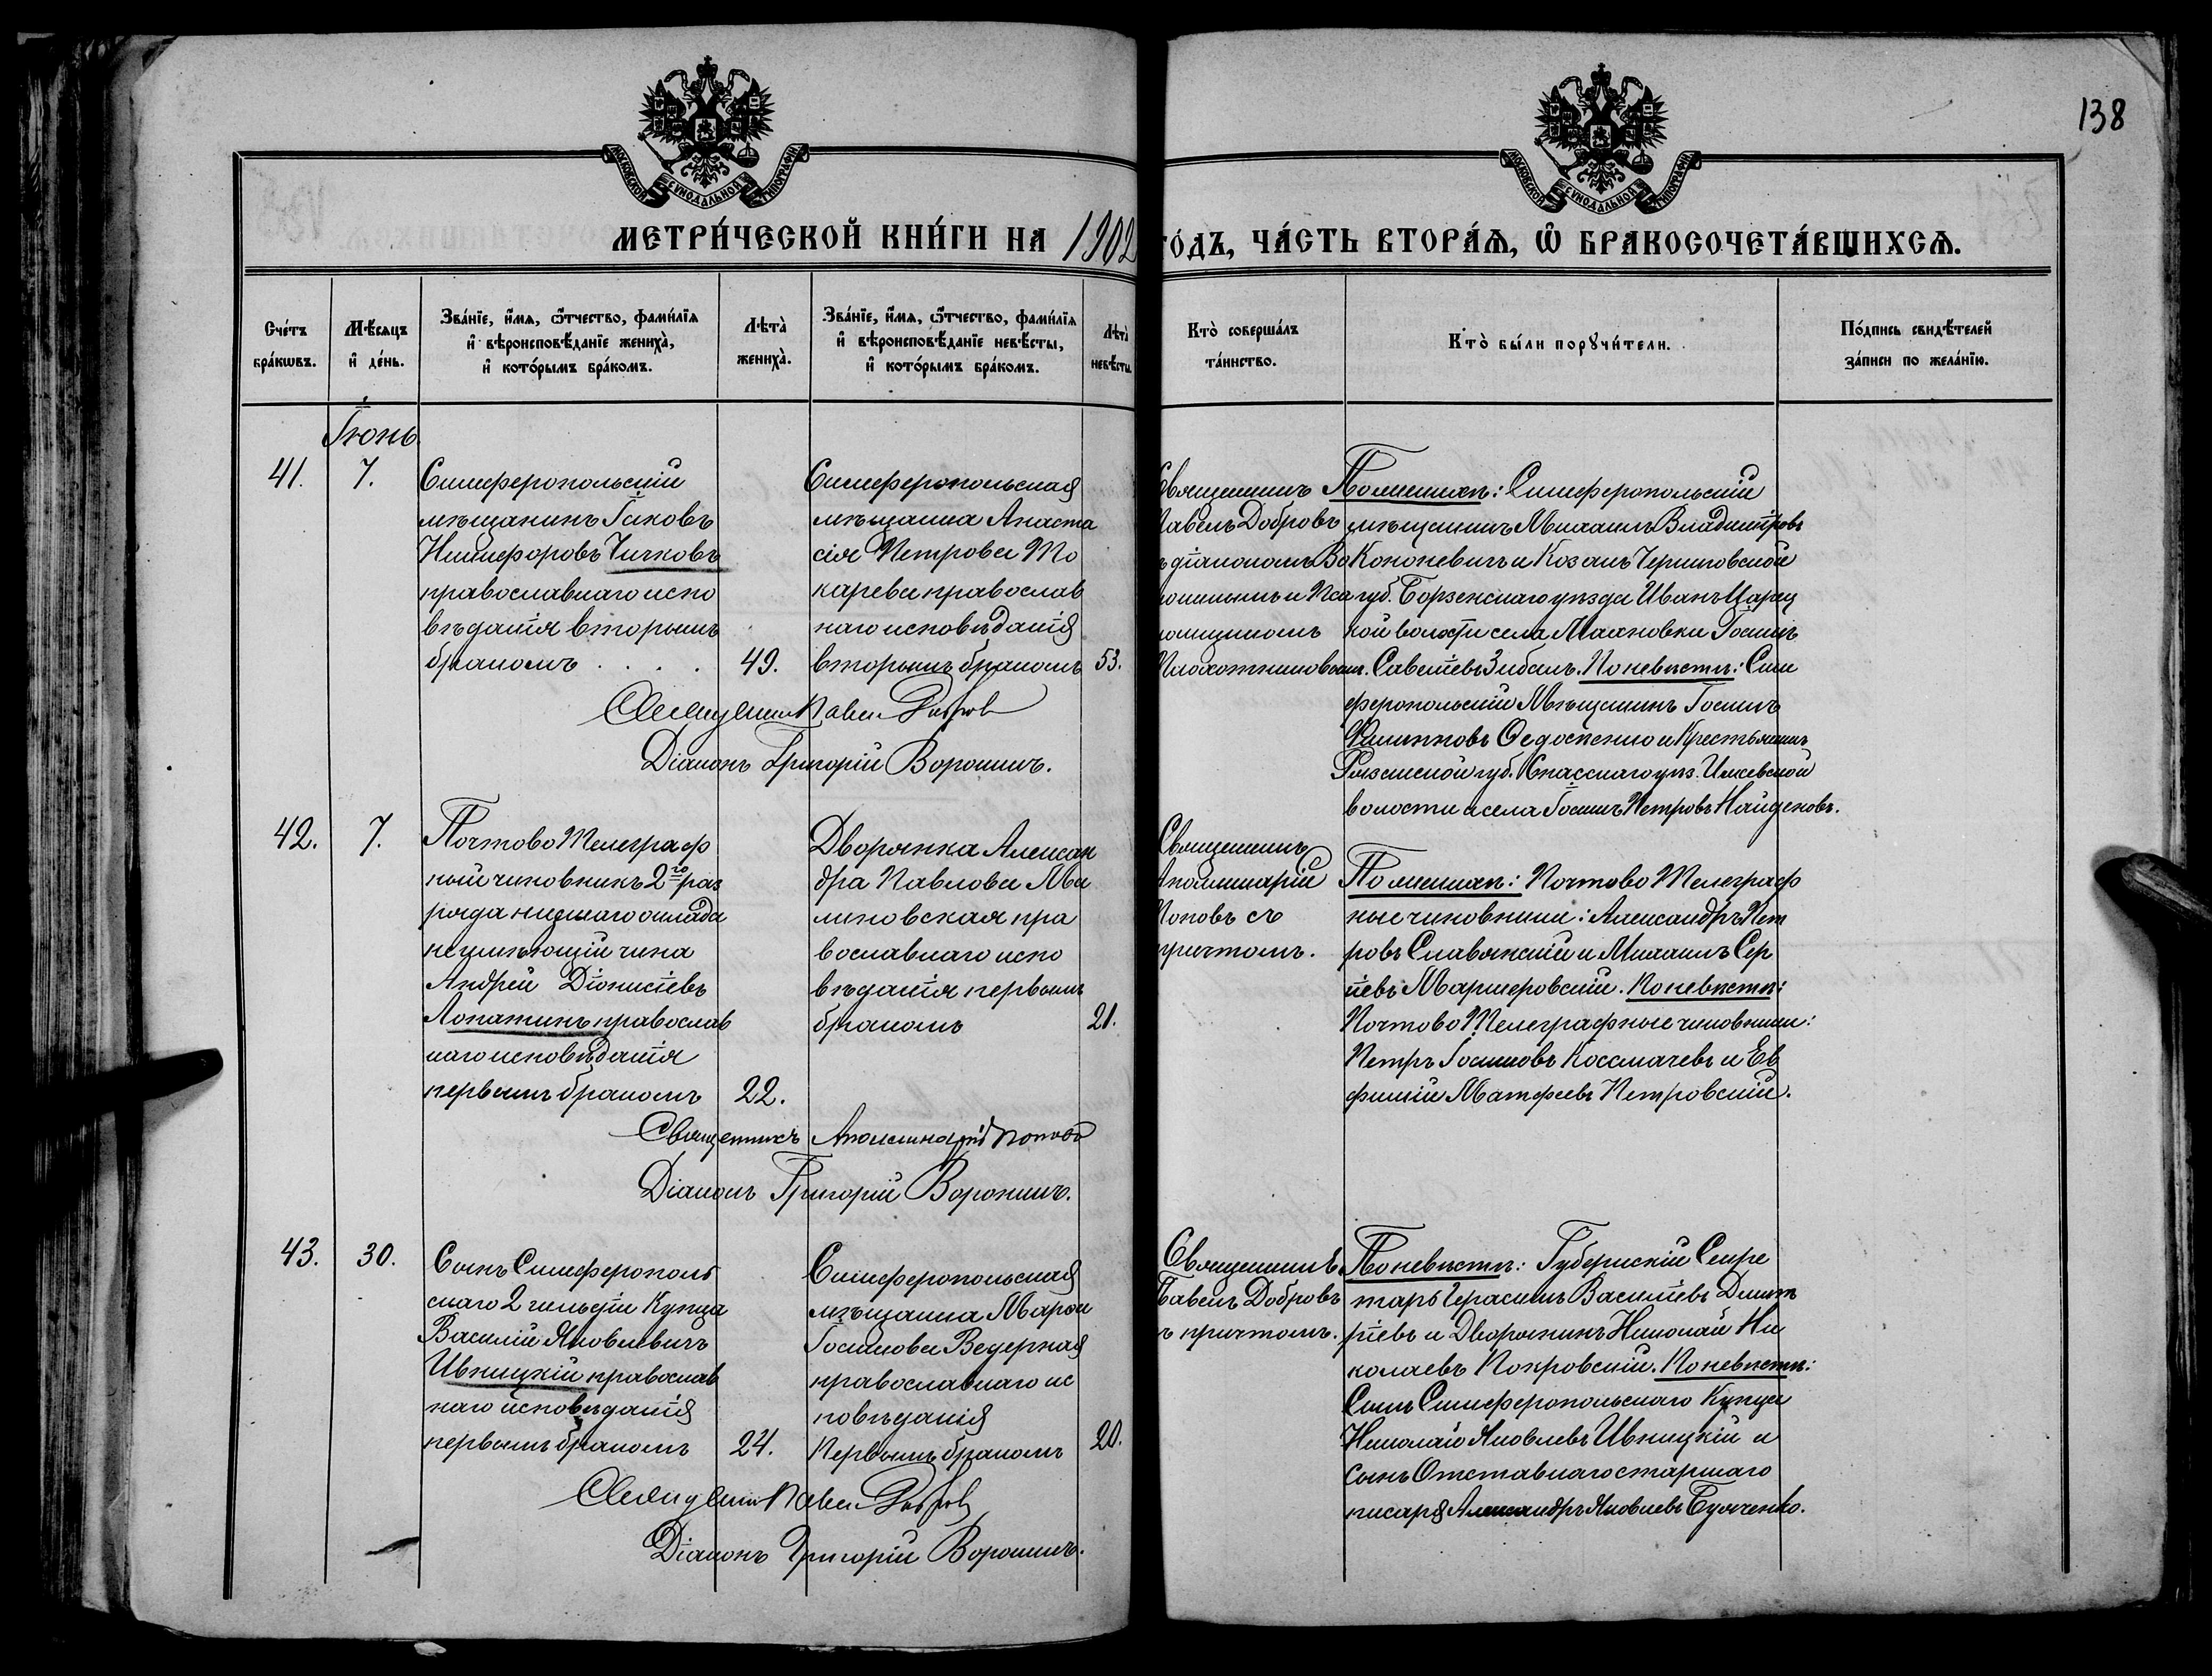 138
МОСКОВСКОЙ СУНОДАЛЬНОЙ ТИПОГРАФІИ
МОСКОВСКОЙ СУНОДАЛЬНОЙ ТИПОГРАФІИ
МЕТРИ́ЧЕСКОЙ КНИ́ГИ НА 1902
ГО́ДЪ, ЧА́СТЬ ВТОРА́Ѧ, Ѽ БРАКОСОЧЕТА́ВШИХСѦ.
Сче́тъ
бра́кѡвъ.
Мѣ́сяцъ
и҆ де́нь.
Зва́нїе, и҆́мѧ, ѻ҆́тчество, фами́лїѧ
и҆ вѣроисповѣ́данїе жениха̀,
и҆ кото́рымъ бра́комъ.
Лѣта̀
жениха̀.
Зва́нїе, и҆́мѧ, ѻ҆́тчество, фами́лїѧ
и҆ вѣроисповѣ́данїе невѣ́сты,
и҆ кото́рымъ бра́комъ.
Лѣта̀
невѣ́сты
Кто̀ соверша́лъ
та́инство.
Кто̀ бы́ли порꙋчи́тели.
По́дпись свидѣ́телей
за́писи по жела́нїю.
Іюнь
41.
7.
Симферопольскій
мѣщанинъ Іаковъ
Никифоровъ Чичковъ
православнаго испо
вѣданія вторымъ
бракомъ . . . .
49.
Симферопольская
мѣщанка Анаста
сія Петрова То
карева православ
наго исповѣданія
вторымъ бракомъ
53.
Священникъ
Павелъ Добровъ
ъ діакономъ Во
рониымъ и Пса
ломщикомъ
Плохотниковымъ.
По женихѣ: Симферопольскій
мѣщанинъ Михаилъ Владиміровъ
Кононевичъ и Козакъ Черниговской
губ. Борзенскаго уѣзда Иванъ Цариц
кой волости села Іоаннъ
Савелiевъ Зибалъ. По невѣстѣ: Сим
феропольскій Мѣщанинъ Іоаннъ
Филипповъ Федосѣенко и Крестьянинъ
Рязанской губ. Спасскаго уѣз. Ижевской
волости и села Іоаннъ Петровъ Найденовъ.
Священникъ Павелъ Добровъ
Діаконъ Григорій Воронинъ.
42.
7.
Почтово Телеграф
ный чиновникъ 2го раз
ряда низшаго оклада
неимѣющій чина
Андрей Діонисіевъ
Лопатинъ православ
наго исповѣданія
первымъ бракомъ
22.
Дворянка Алексан
дра Павлова Ма
линовская пра
вославнаго испо
вѣданія первымъ
бракомъ
21.
Священникъ
Аполлинарій
Поповъ съ
причтомъ.
По женихѣ: Почтово Телеграф
ные чиновники: Александръ Пет
ровъ Славянскій и Михаилъ Сер
гіевъ Маркеровскій. По невѣстѣ:
Почтово Телеграфные чиновники:
Петръ Іоанновъ Космачевъ и Ев
фимій Матфеевъ Петровскій.
Священникъ Аполлинарій Поповъ
Діаконъ Григорій Воронинъ.
43.
30.
Сынъ Симферополь
скаго 2 гильдіи Купца
Василій Яковлевичъ
Ивницкій православ
наго исповѣданія
первымъ бракомъ
24.
Симферопольская
мѣщанка Марѳа
Іоаннова Ведерная
православнаго ис
повѣданія
Первымъ бракомъ
20.
Священникъ
Павелъ Добровъ
ъ причтомъ.
По невѣстѣ: Губернскій Секре
тарь Герасимъ Василіевъ Димит
ріевъ и Дворянинъ Николай Ни
колаевъ Покровскій. По невѣстѣ:
Сынъ Симферопольскаго Купца
Николай Яковлевъ Ивницкій и
сынъ Отставнаго старшаго
писаря Александръ Яковлевъ
Священникъ Павелъ Добровъ
Діаконъ Григорій Воронинъ.